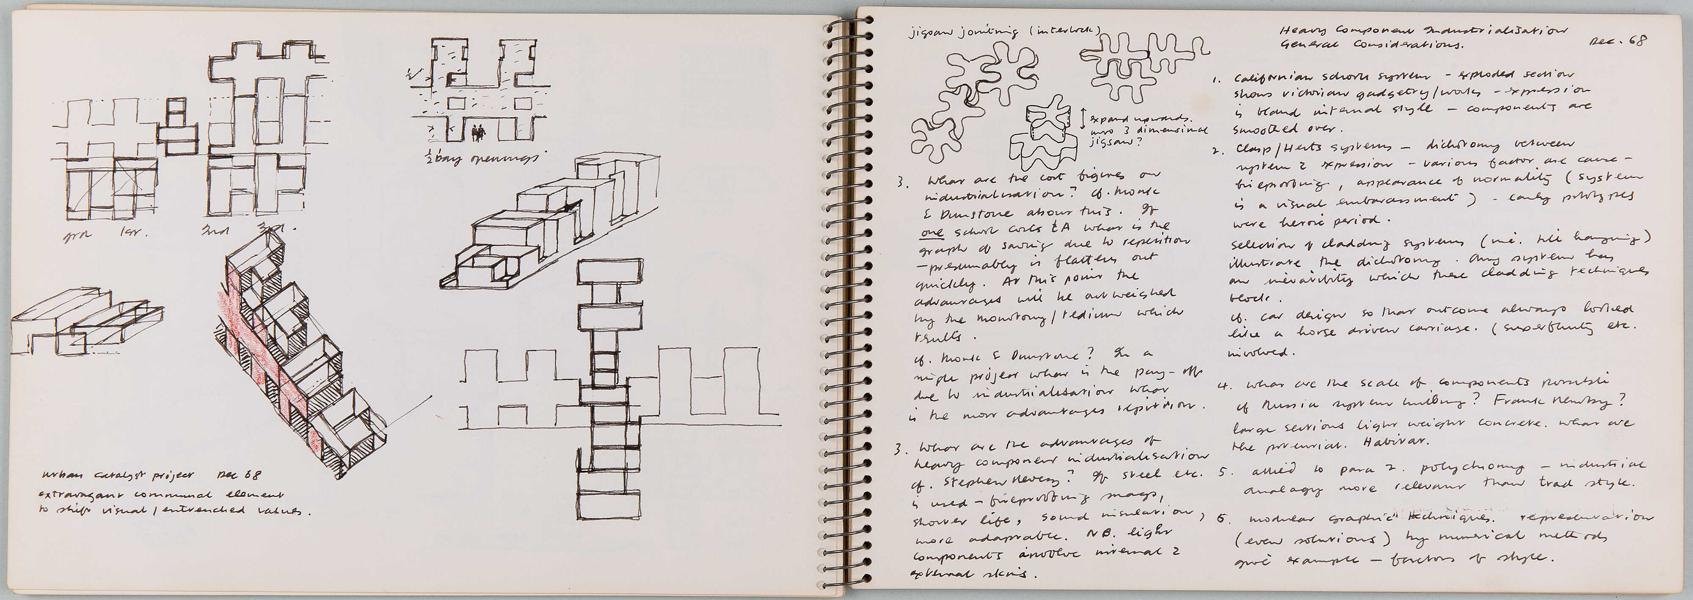 ½ bay openings
grd 1st. 2nd 3rd.
urban catalyst project Dec 68
extravagant communal element
to shift visual/entrenched values.
jigsaw jointing (interlock)
expand upwards.
into 3 dimensional
jigsaw?
3. What are the cost figures on
industrialisation? cf. Monk
& Dunstone about this. If
one school costs £A what is the
graph of saving due to repetition
– presumably it flattens out
quickly. At this point the
advantages will be outweighed
by the monotony/tedium which
results.
cf. Monk & Dunstone? In a
single project what is the pay-off
due to industrialisation what
is the most advantages repetition.
3. What are the advantages of
heavy component industrialisation
cf. Stephen ? If steel etc.
is used – fireproofing snags,
shorter life, sound insulation,
more adaptable. NB. light
components involve internal &
external skins.
Heavy Component Industrialisation
General Considerations. Dec. 68
1. Californian schools system – exploded section
shows victorian gadgetry/works – expression
is bland internal style – components are
smoothed over.
2. Clasp/Herts systems – dichotomy between
system & expression – various factor are cause –
fireproofing, appearance of normality (system
is a visual embarassment) – early prototypes
were heroic period.
Selection of cladding systems (inc. tile hanging)
illustrate the dichotomy. Any system has
an inevitability which these cladding techniques
block.
cf. car design so that outcome always looked
like a horse driven carriage. (superfluity etc.
involved.
4. What are the scale of components possible
cf Russia system building? Frank Newby?
large sections light weight concrete. What are
the potential. Habitat.
5. allied to para 2. polychromy – industrial
analogy more relevant than trad style.
6. modular graphic techniques. representation
(even solutions) by numerical methods
give example – factors of style.